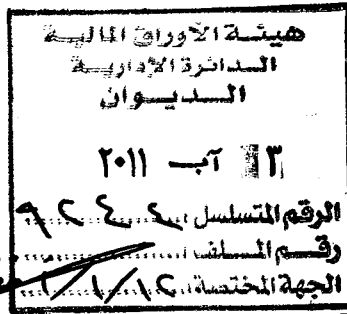 هيئة الأوراق المالية
الدائرة الإدارية
الديوان
٣ آب ٢٠١١
الرقم المتسلسل
رقم الملف
الجهة المختصة